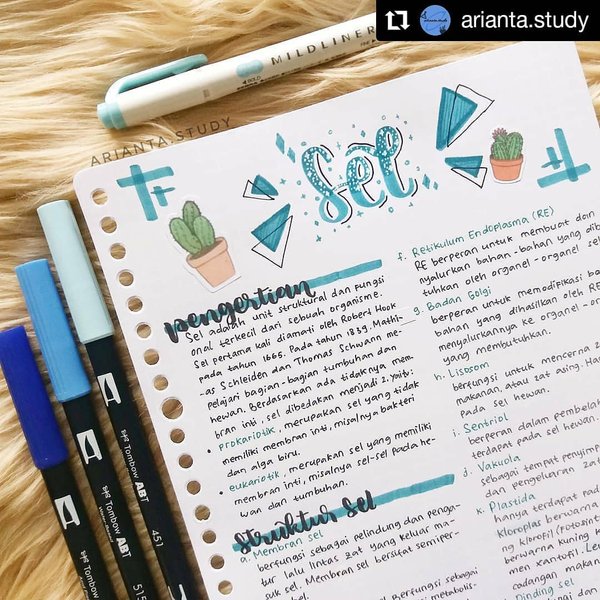 arianta.study
MILDLINER
ARIANTA.STUDY
Sel
pengertian
Sel adalah unit struktural dan fungsi
onal terkecil dari sebuah organisme.
Sel pertama kali diamati oleh Robert Hook
pada tahun 1665. Pada tahun 1839, Mathi-
as Schleiden dan Thomas Schwann me-
pelajari bagian-bagian tumbuhan dan
hewan. Berdasarkan ada tidaknya mem
bran inti, sel dibedakan menjadi 2, yaitu:
• prokariotik, merupakan sel yang tidak
memiliki membran inti, misalnya bakteri
dan alga biru.
• eukariotik, merupakan sel yang memiliki
membran inti, misalnya sel-sel pada he
wan dan tumbuhan.
struktur sel
a. Membran sel
berfungsi sebagai pelindung dan penga-
tur lalu lintas zat yang keluar ma-
suk sel. Membran sel bersifat semiper-
berfungsi sebagai
f. Retikulum Endoplasma (RE)
RE berperan untuk membuat dan
nyalurkan bahan-bahan yang dibu
tuhkan oleh organel-organel sel
g. Badan Golgi
berperan untuk memodifikasi ba
bahan yang dihasilkan oleh RE
menyalurkannya ke organel-or
yang membutuhkan.
h. Lisosom
berfungsi untuk mencerna
makanan, atau zat asing. Han
pada sel hewan.
i. Sentriol
berperan dalam pembelah
terdapat pada sel hewan.
j. Vakuola
sebagai tempat penyimp
dan pengeluaran zat
k. Plastida
hanya terdapat pada
kloroplas berwarna
ng klorofil (fotosint
berwarna kuning k
men xantofil. Leu
cadangan makan
Dinding sel
Tombow ABT
Tombow ABT
515
Tombow ABT
451